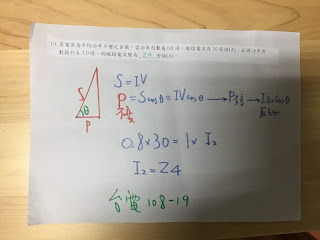 19. 若電源為平均功率不變之負載,當功率因數為0.8時,線路電流為30安培(A),當將功率因
數提升至1.0時,則線路電流變為 24 安培(A)。
S=IV
P=Scosθ=IVcosθ → P不變 → I與cosθ
不變
反比
S
θ
P
0.8×30=1×I₂
I₂=24
台電108-19